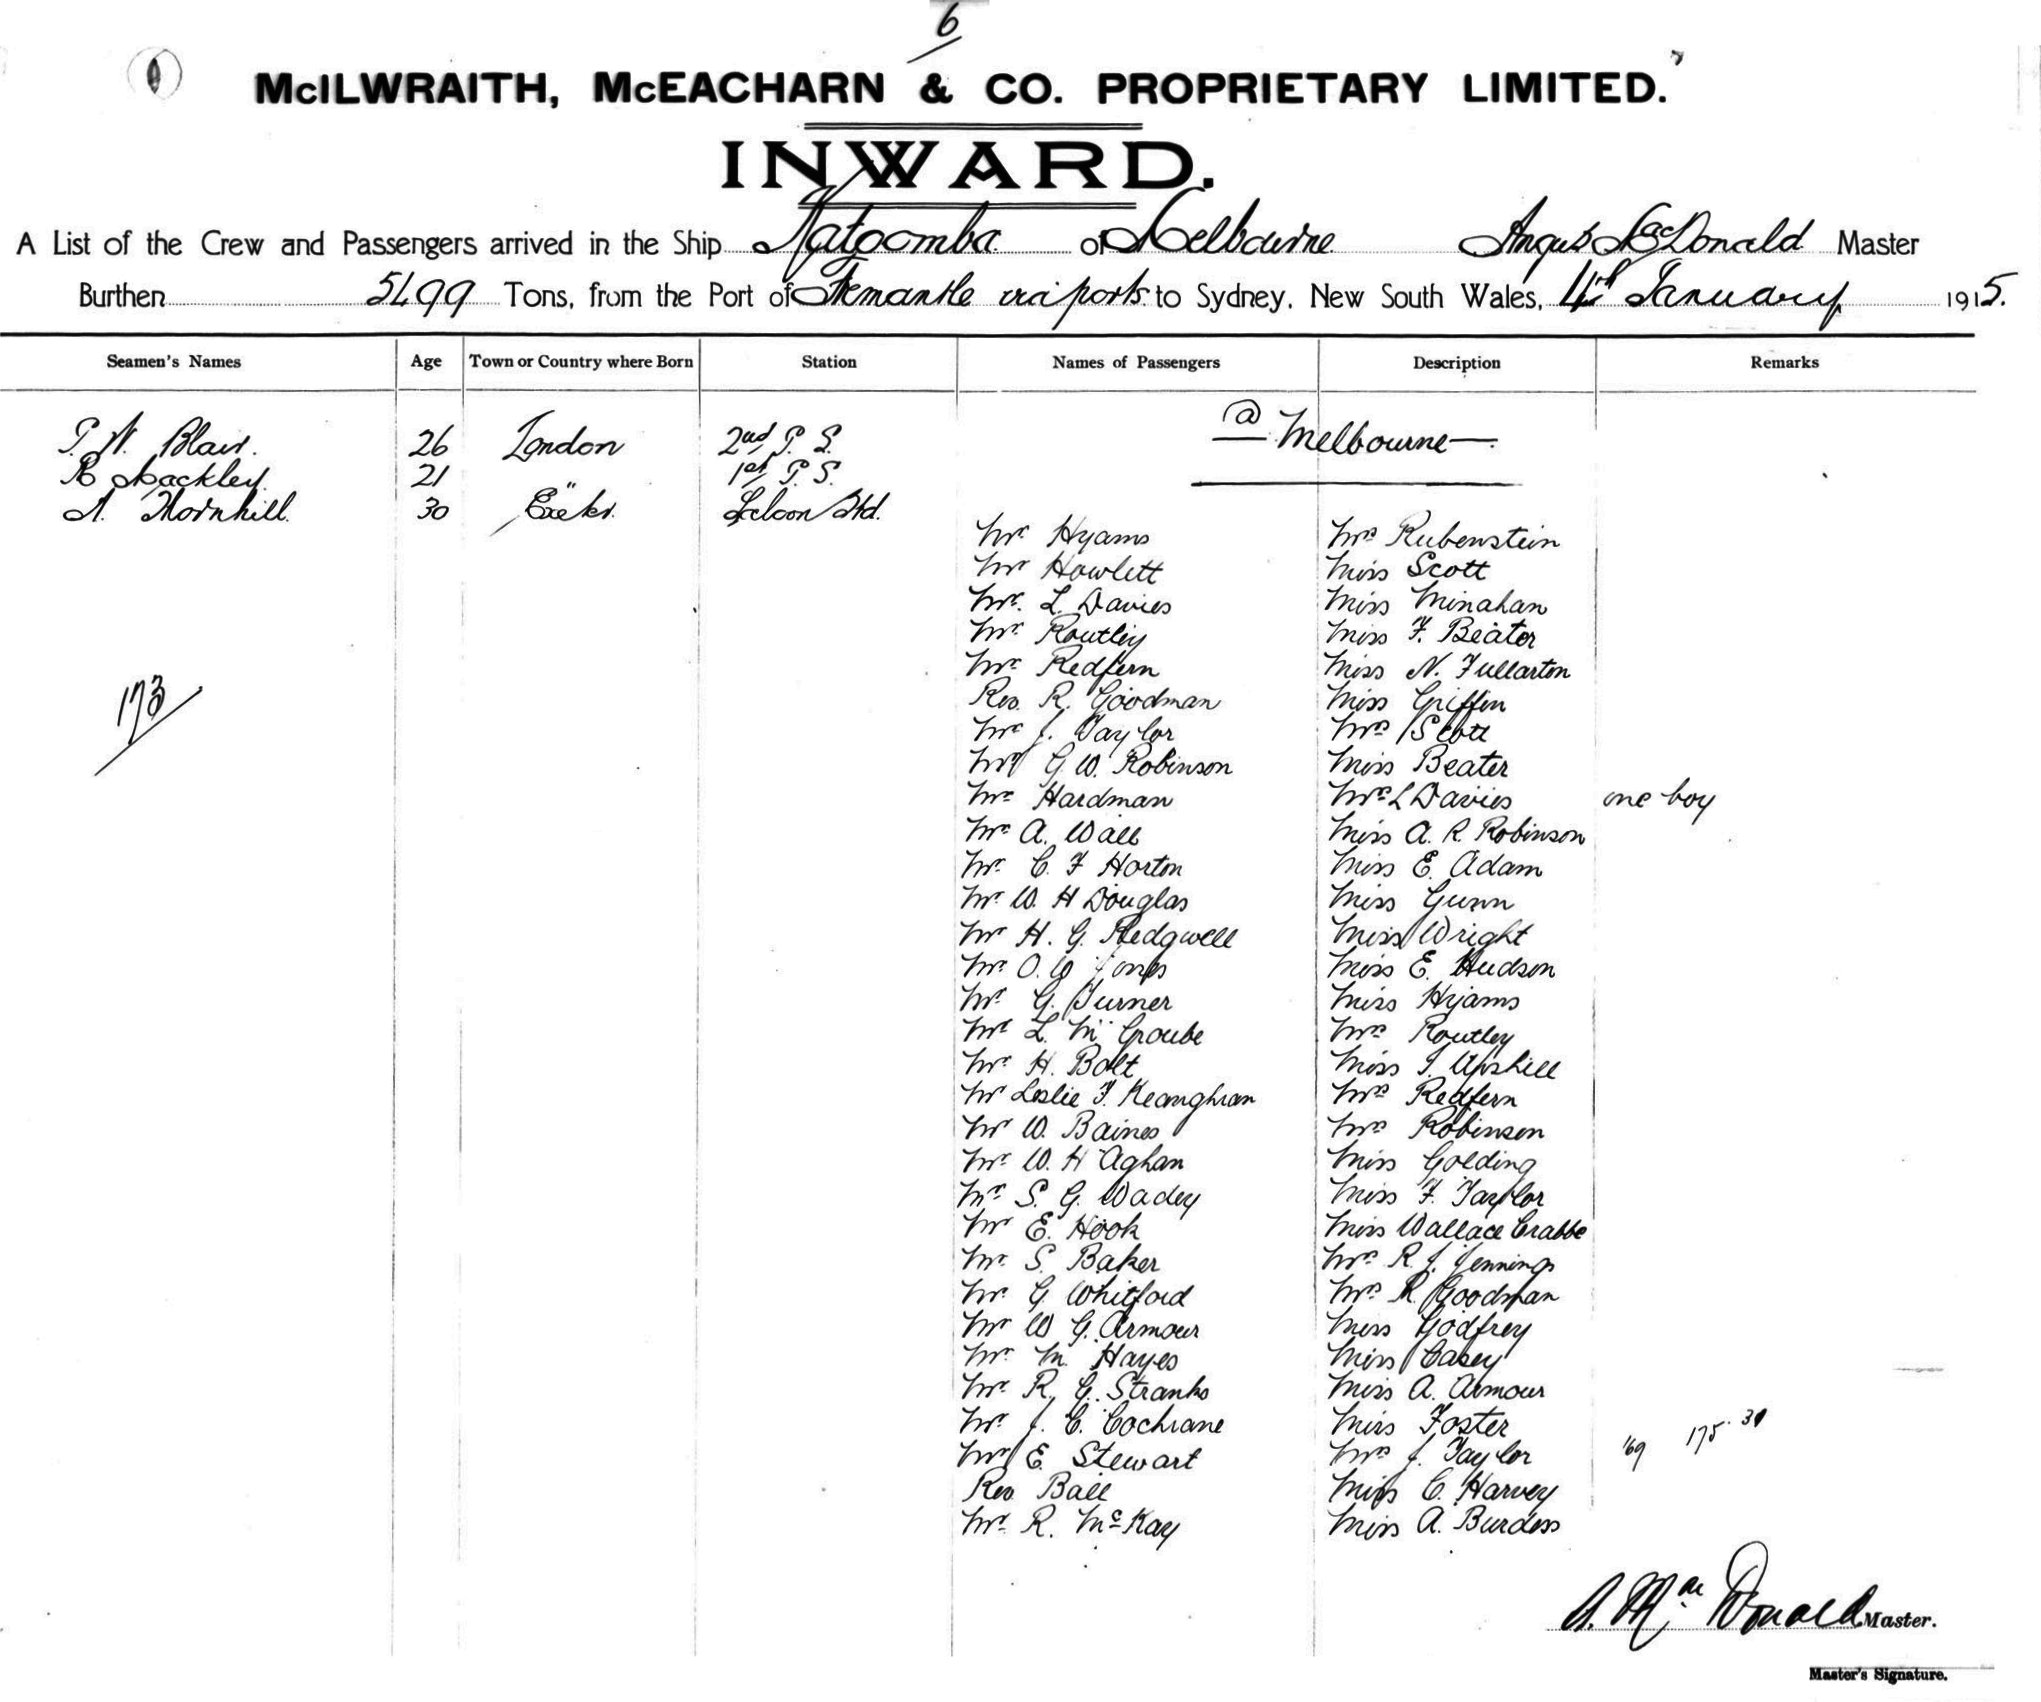 6
McILWRAITH, McEACHARN & CO. PROPRIETARY LIMITED.
INWARD.
A List of the Crew and Passengers arrived in the Ship Katoomba of Melbourne Angus MacDonald Master
Burthen 5499 Tons, from the Port of Fremantle via ports to Sydney, New South Wales, 4th January 1915.
Seamen's Names Age Town or Country where Born Station Names of Passengers Description Remarks
@ Melbourne
Blair. 26 London 2nd P. S.
R Mackley 21 " 1st P. S.
A. Thornhill. 30 Exeter. Saloon Std.
173
Mr Hyams Mrs Rubenstein
Mr Howlett Miss Scott
Mr. L. Davies Miss Minahan
Mr Routley Miss F. Beater
Mr Redfern Miss N. Fullarton
Rev. R. Goodman Miss Griffin
Mr J. Taylor Mrs Scott
Mr G. W. Robinson Miss Beater
Mr Hardman Mrs L Davies one boy
Mr A. Wall Miss A. R. Robinson
Mr. C. F Horton Miss E. Adam
Mr. W. H Douglas Miss Gunn
Mr H. G. Redgwell Miss Wright
Mr. O. W Jones Miss E. Hudson
Mr. G. Turner Miss Hyams
Mr L. Mc Groube Mrs Routley
Mr. H. Bolt Miss Upshill
Mr Leslie F. Keanghran Mrs Redfern
Mr W. Baines Mrs Robinson
Mr. W. H Aghan Miss Golding
Mr S. G. Wadey Miss F. Taylor
Mr E. Hook Miss Wallace Crabbe
Mr. S. Baker Mrs R. J. Jennings
Mr. G Whitford Mrs R. Goodman
Mr W G. Armour Miss Godfrey
Mr. M. Hayes Miss Casey
Mr. R. G. Stranks Miss A. Armour
Mr. J. C. Cochrane Miss Foster
Mr E. Stewart Mrs J. Taylor 169 175. 31
Rev. Ball Miss C. Harvey
Mr. R. McKay Miss A. Burdess
A. MacDonald Master.
Master's Signature.